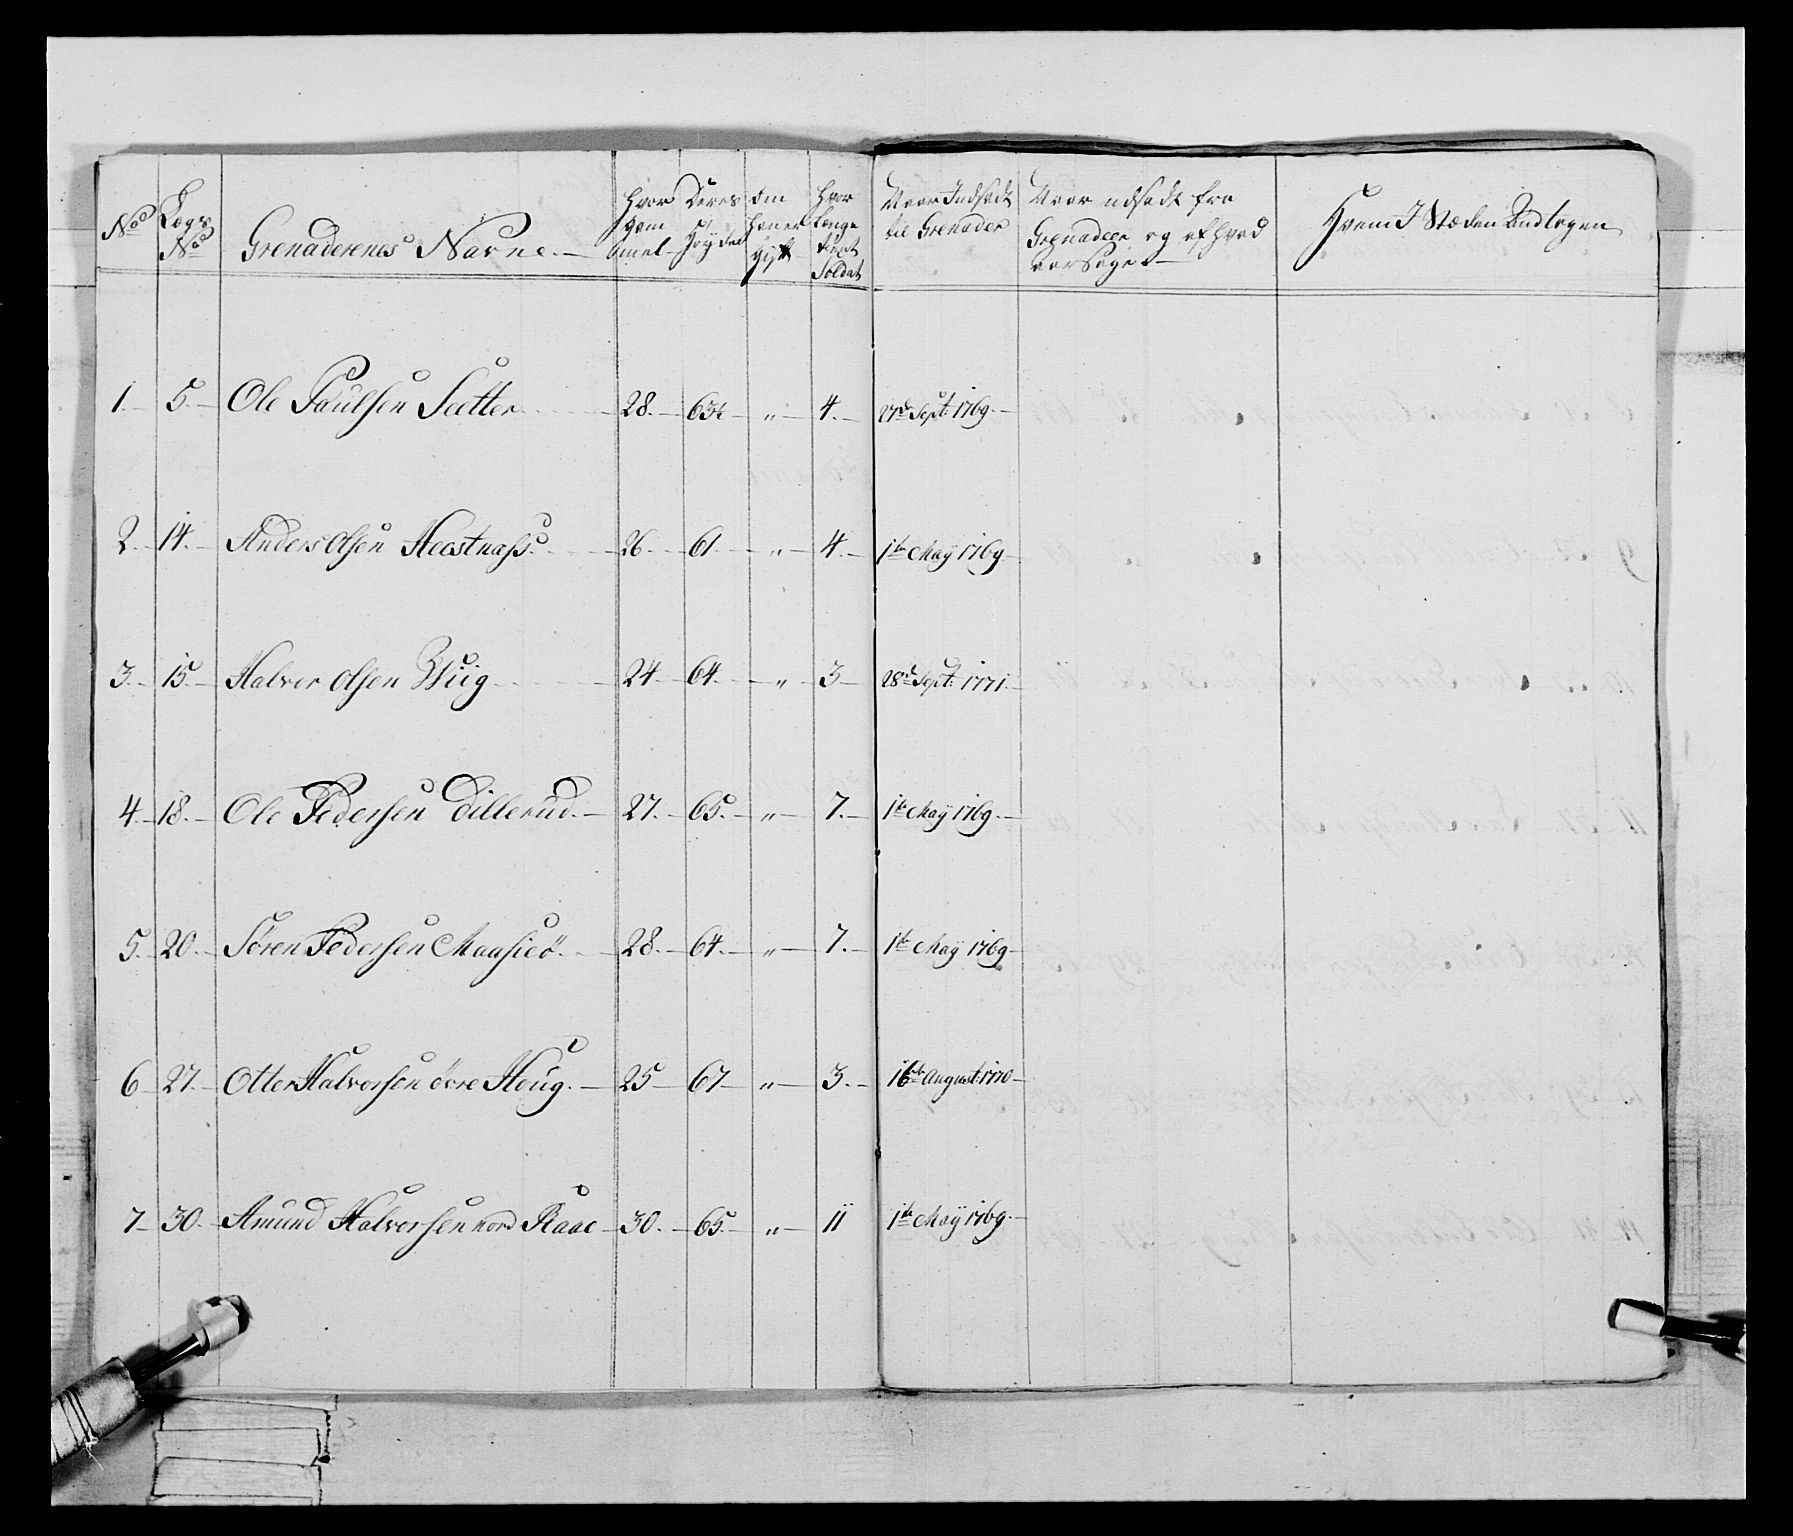 No
Lægs No
Grenaderenes Navne.
Hvor gam mel
Deres Høyde
Om han er Gift
Hvor længe tient Soldat
Naar Indsadt til Grenader
Naar udsadt fra Grenader og af Hvad aarsage
Hvem I Stæden Andtagen
1. 5. Ole Paulsen Sætter 28. 63½ " 4. 27de Sept: 1769.
2. 14. Anders Olsen Hæstnæss 26. 61 " 4. 1te Maÿ 1769.
3. 15. Halvor Olsen Wiig 24. 64. " 3 28de Sept: 1771.
4. 18. Ole Pedersen Dillerud. 27. 65. " 7. 1te Maÿ 1769.
5. 20. Sören Pedersen Maasieö. 28. 64. " 7. 1te Maÿ 1769
6 27. Otter Halvorsen övre Houg. 25 67 " 3. 16de August: 1770
7 30. Amund Halvorsen nord Raae 30. 65. " 11 1te Maÿ 1769.